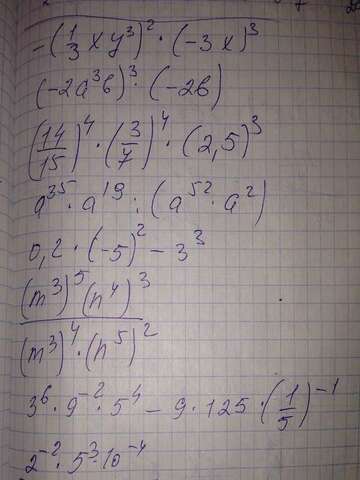 -(1/3 x y³)² · (-3x)³
(-2a³b)³ · (-2b)
(14/15)⁴ · (3/7)⁴ · (2,5)³
a³⁵ · a¹⁹ : (a⁵² · a²)
0,2 · (-5)² - 3³
(m³)⁵(n⁴)³ / (m³)⁴ · (n⁵)²
3⁶ · 9⁻² · 5⁴ - 9 · 125 · (1/5)⁻¹
2⁻² · 5³ · 10⁻⁴